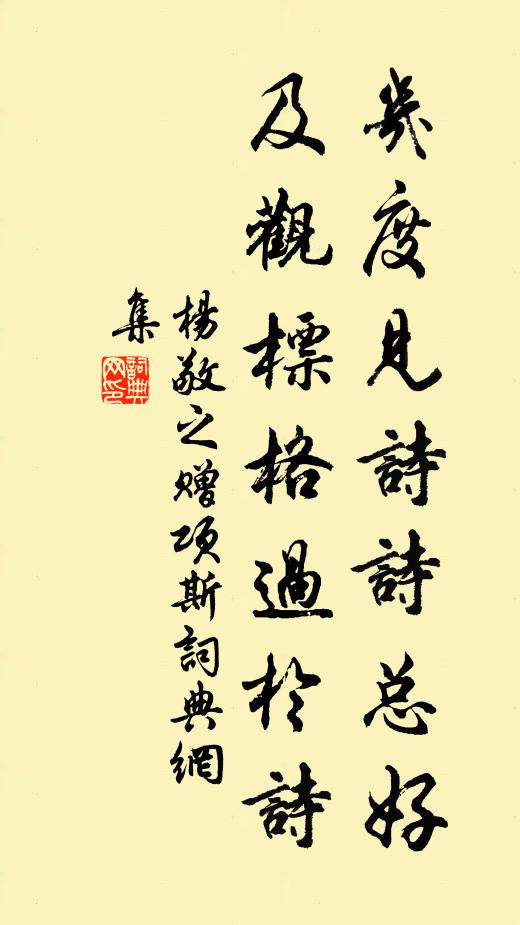 幾度見詩詩总好
及觀標格過於詩
楊敬之贈項斯詞典網
集
詞典
网印